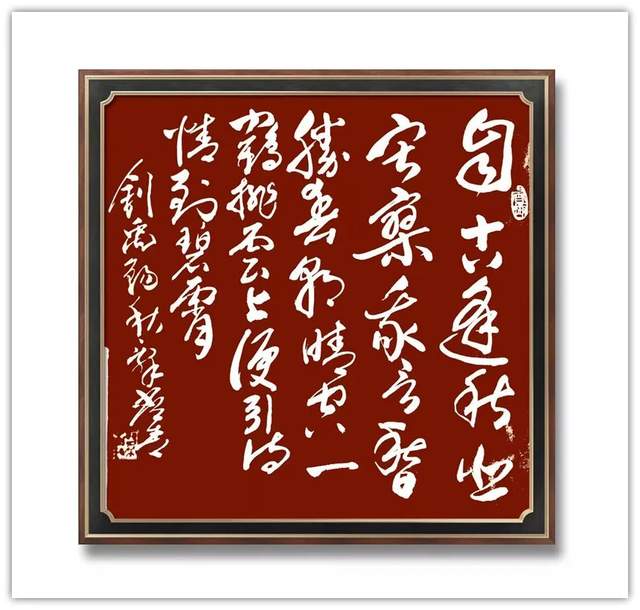 自古逢秋悲
寂寥我言秋日
胜春朝晴空一
鹤排云上便引诗
情到碧霄
刘禹锡秋词